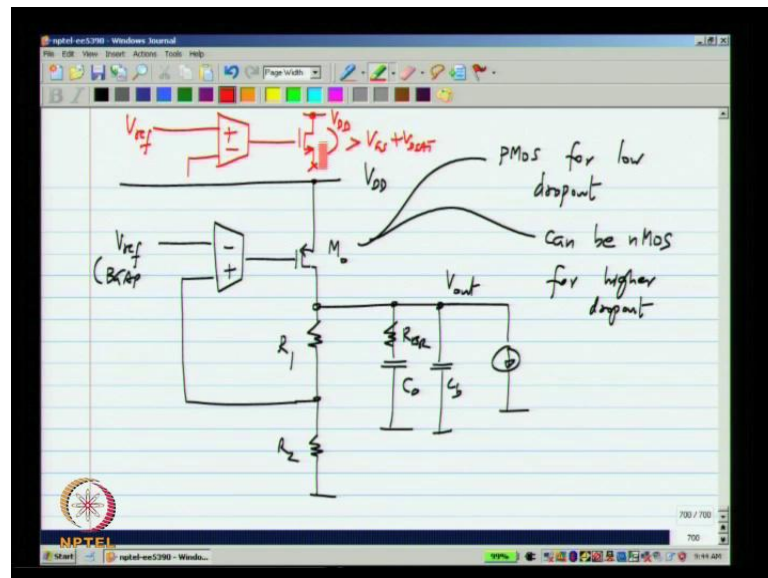 nptel-ee5390 - Windows Journal
File Edit View Insert Actions Tools Help
Page Width
B I
V_DD
V_ref
+
-
> V_GS + V_DSAT
V_DD
PMOS for low
dropout
V_ref
(BGAP
-
+
M_o
can be nMOS
for higher
dropout
V_out
R_1
R_ESR
C_o
C_b
R_2
NPTEL
700 / 700
700
Start
nptel-ee5390 - Windo...
99%
9:44 AM